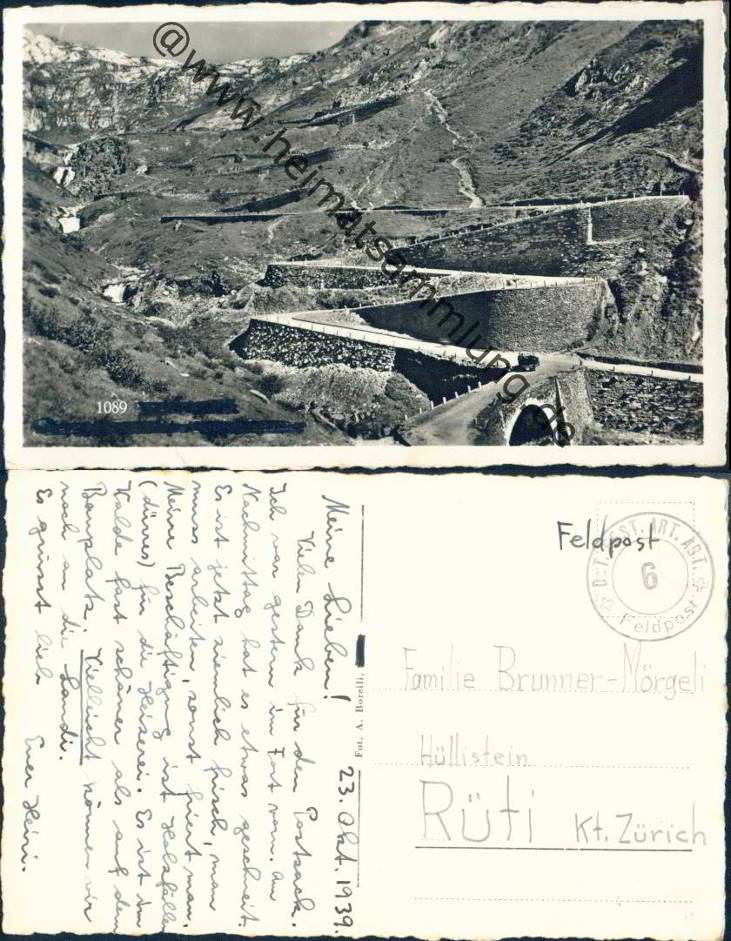 @www.heimatsammlung.de
1089
Meine Lieben! 23. Okt. 1939.
Vielen Dank für den Postsack.
Ich war gestern im Fort vorn. Am
Nachmittag hat es etwas geschneit.
Es ist jetzt ziemlich frisch, man
muss arbeiten, sonst friert man.
Meine Beschäftigung ist Holzfällen
(dürres) für die Heizerei. Es ist im
Walde fast schöner als auf dem
Bauplatz. Vielleicht können wir
noch an die Landi.
Es grüsst Euch
Euer Heiri.
Fot. A. Borelli,
Feldpost
FEST. ART. ABT.
6
Feldpost
Familie Brunner-Mörgeli
Hüllistein
Rüti Kt. Zürich